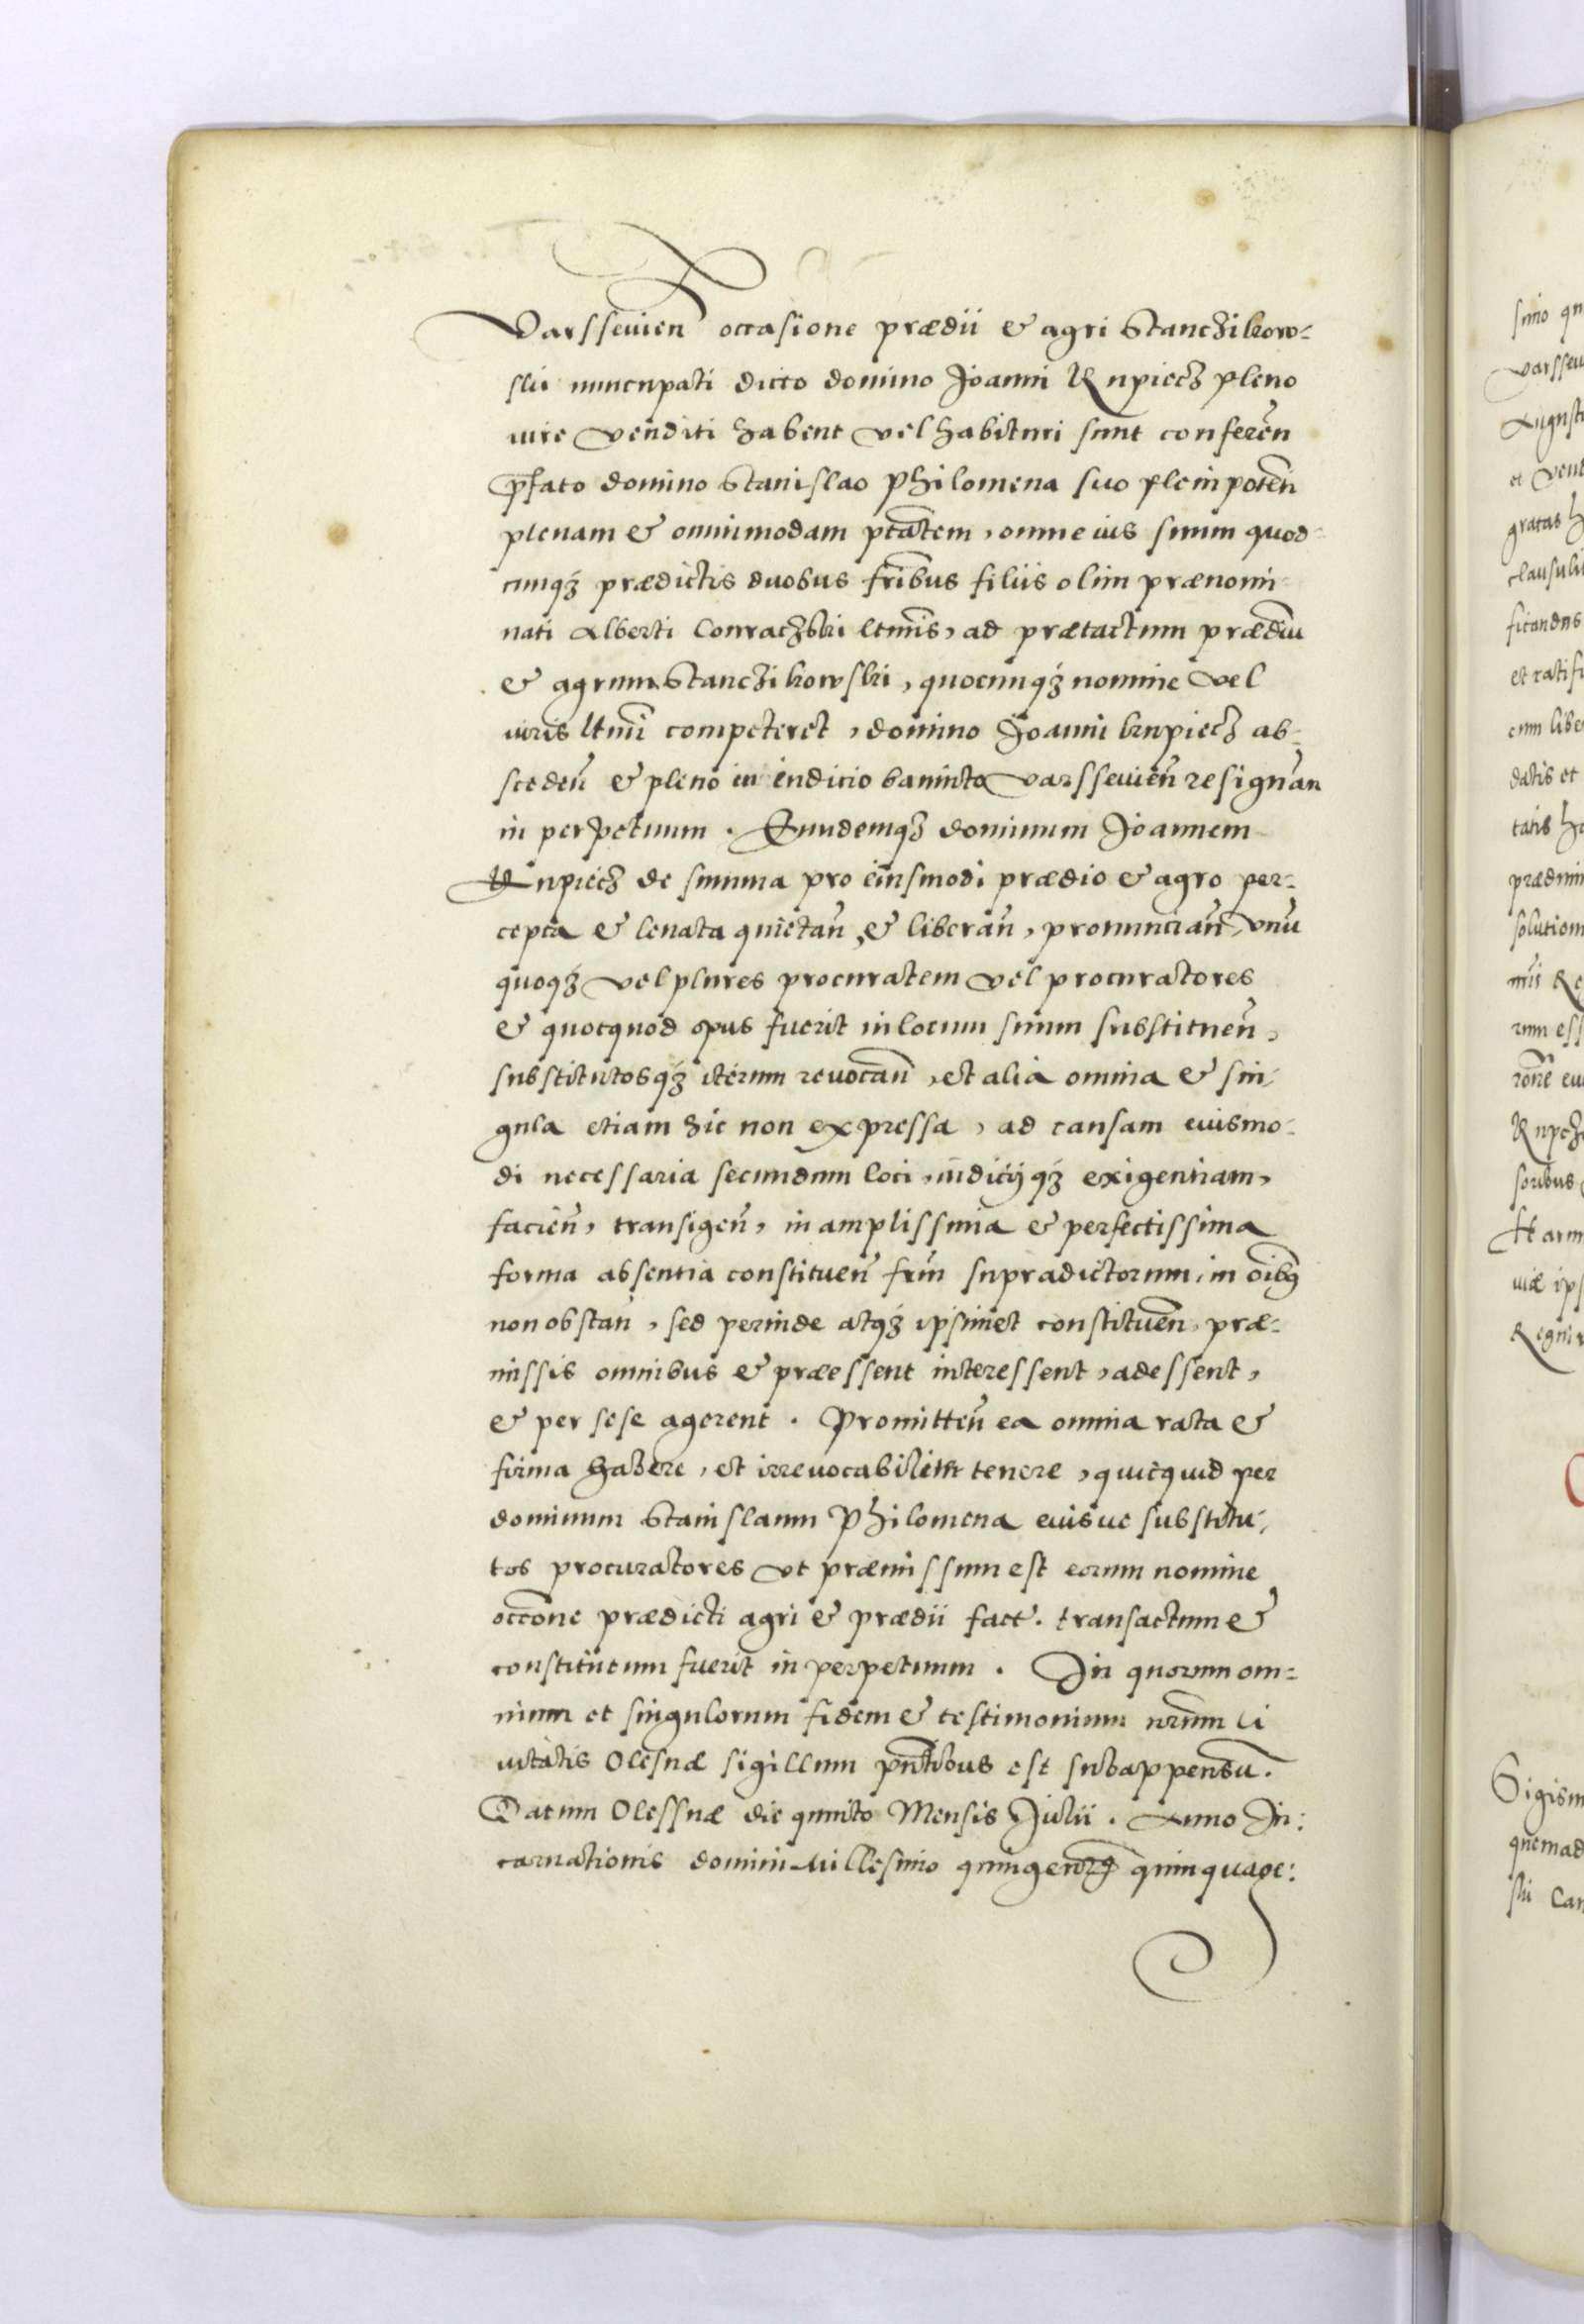 Varsseuień occasione prædii & agri Stanczikow-
slii nuncupati dicto domino Joanni Kupiecz pleno
iure venditi habent vel habituri sunt confereń
p̄fato domino Stanislao Philomena suo plenipoteń
plenam & omnimodam ptātem, omne ius suum quod-
cunqꝫ prædictis duobus fribus filiis olim prænomi
nati Alberti Conraczski ltmis, ad prætactum prædiū
& agrum Stanczikowski, quocunqꝫ nomine vel
iuris ltmi competeret, domino Joanni kupiecz ab-
scedeń & pleno in iudicio bannito Varsseuień resignań
in perpetuum. Eundemqꝫ dominum Joannem
Kupiecz de summa pro eiusmodi prædio & agro per-
cepta & leuata quietań & liberań, pronunciań, vnū
quoqꝫ vel plures procuratem vel procuratores
& quotquod opus fuerit in locum suum substitueń,
substitutosqꝫ iterum reuocań, et alia omnia & sin-
gula etiam hic non expressa, ad causam euismo-
di necessaria secundum loci, iudicijqꝫ exigentiam,
facień, transigeń, in amplissima & perfectissima
forma absentia constitueń frm̄ supradictorum, in oībꝫ
non obstań, sed perinde atqꝫ ipsimet constitueń, præ-
missis omnibus & præessent interessent, adessent,
& per sese agerent. Promitteń ea omnia rata &
firma habere, et irreuocabiliter tenere, quicquid per
dominum Stanislaum Philomena euisue substitu-
tos procuratores vt præmissum est eorum nomine
occōne prædicti agri & prædii fact. transactum &
constitutum fuerit in perpetuum. In quorum om-
nium et singulorum fidem & testimonium nrūm Ci
uitatis Olesnæ sigillum pn̄tibus est subappensū.
Datum Olessnæ die quinto Mensis Julii. Anno In:
carnationis domini Millesimo quingentesº quinquage:
simo qu
varsseu
August
et vent
gratas h
clausuli
ficandus
et ratifi
cum libe
datis et
tatis ha
prædiui
solution
mii Re
rum ess
rōnē eu
Kupcz
soribus
Harm
uiæ ips
Regni
Sigism
quemad
slii Can